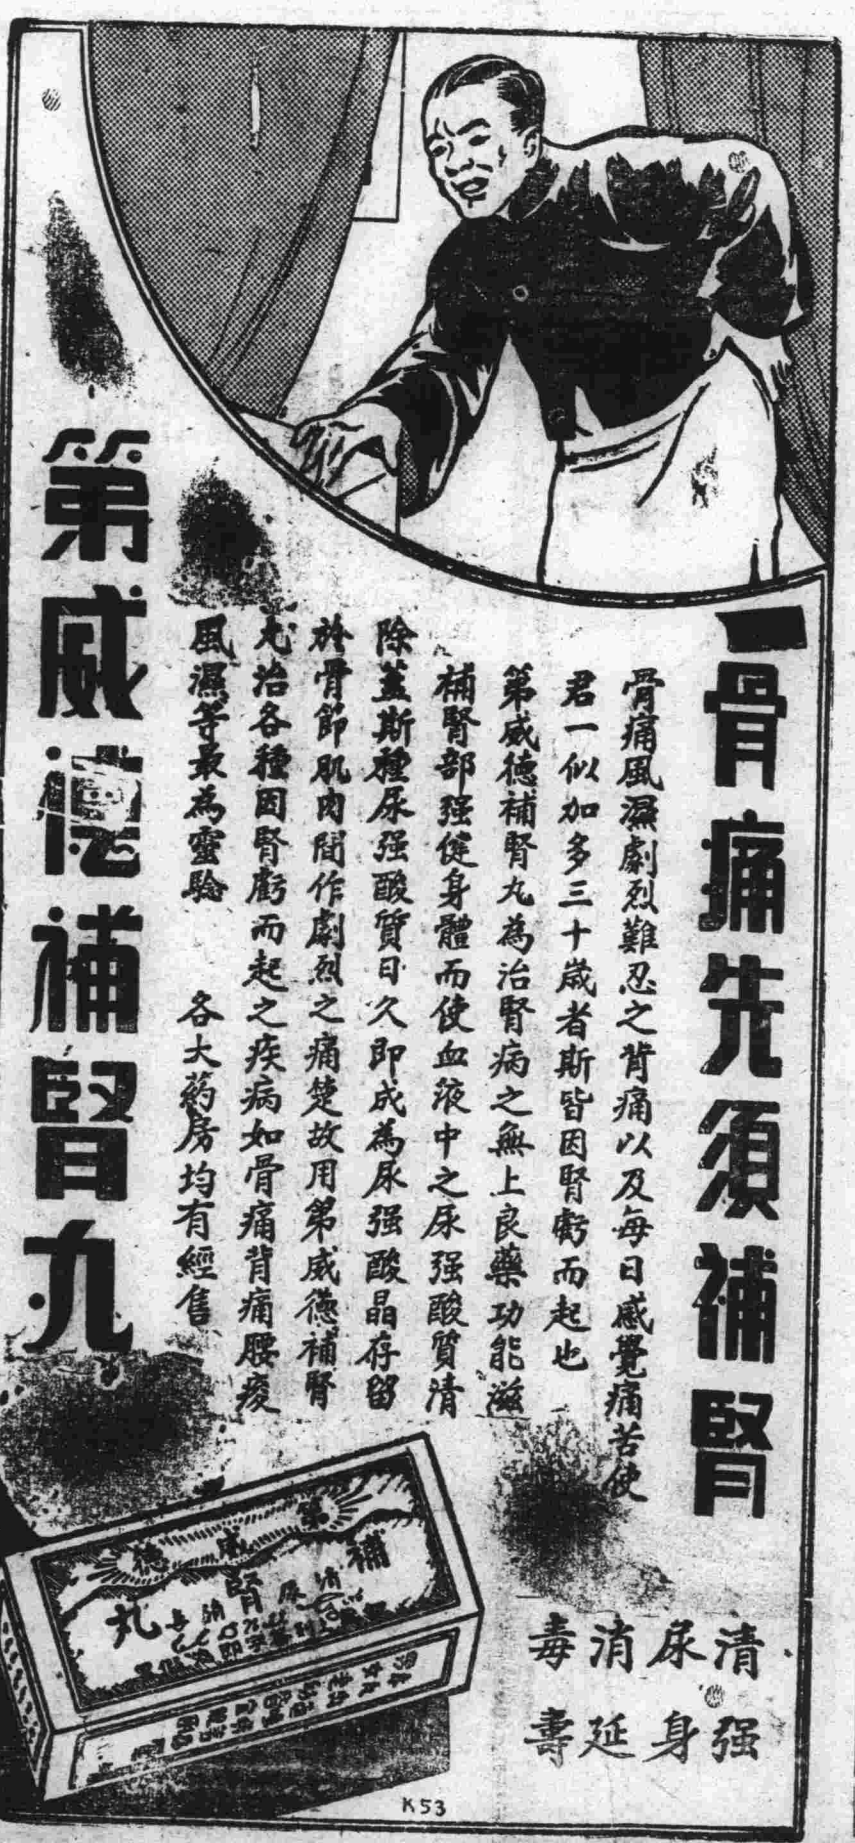 骨痛先須補腎
骨痛風濕劇烈難忍之背痛以及每日感覺痛苦使
君一似加多三十歲者斯皆因腎虧而起也
第威德補腎丸為治腎病之無上良藥功能滋
補腎部强健身體而使血液中之尿强酸質清
除蓋斯種尿强酸質日久即成為尿强酸晶存留
於骨節肌肉間作劇烈之痛楚故用第威德補腎
丸治各種因腎虧而起之疾病如骨痛背痛腰痠
風濕等最為靈驗 各大葯房均有經售
第威德補腎丸
清尿消毒
强身延壽
第威德
補腎丸
K53